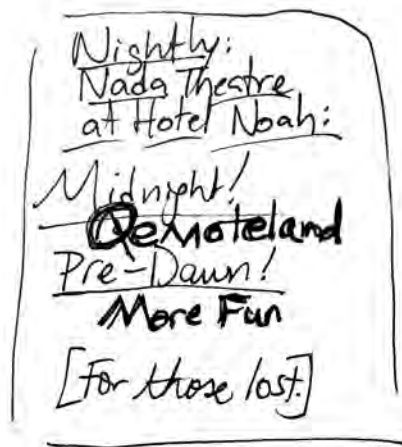 Nightly:
Nada Theatre
at Hotel Noah:
Midnight!
Remoteland
Pre-Dawn!
More Fun
[For those lost.]